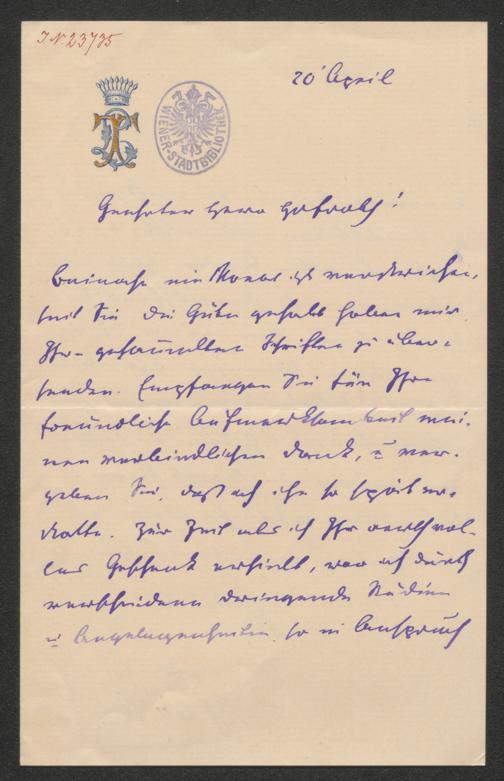 I. N 23735
20 April
WIENER-STADTBIBLIOTHEK
Geehrter Herr Hofrath!
Beinahe ein Monat ist verstrichen,
seit Sie die Güte gehabt haben mir
Ihre gesammelten Schriften zu über-
senden. Empfangen Sie für Ihre
freundliche Aufmerksamkeit mei-
nen verbindlichen Dank, u ver-
geben Sie, daß ich ihn so spät er-
statte. Zur Zeit als ich Ihr werthvol-
les Geschenk erhielt, war ich durch
verschiedene dringende Studien
u Angelegenheiten so in Anspruch